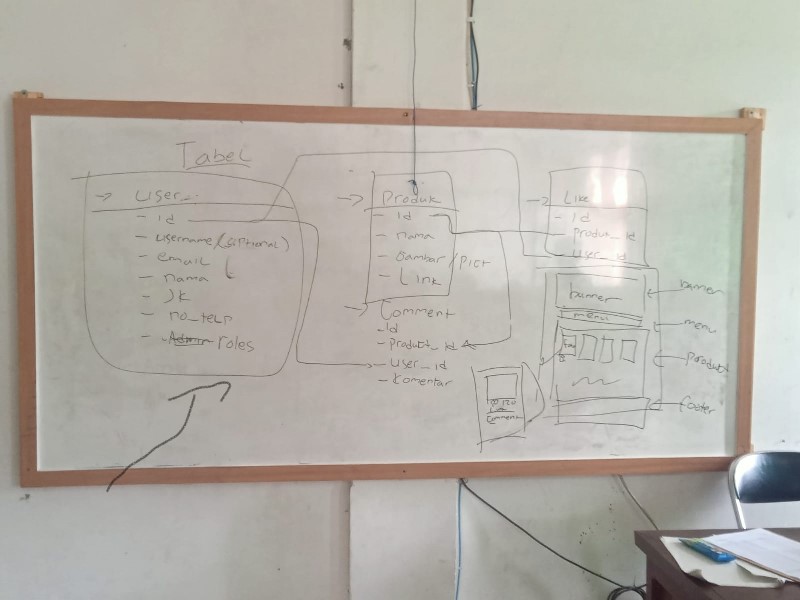 Tabel
→ user
- id
- username (optional)
- email
- nama
- JK
- no_telp
- Admin roles
→ Produk
- id
- nama
- Gambar/Pict
- Link
→ Comment
- Id
- Produkt_id
- User_id
- Komentar
→ Like
- id
- Produk_id
- User_id
banner
menu
banner
menu
Product
footer
Comment